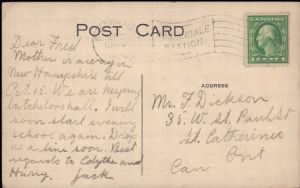 POST CARD
STATION
Dear Fred
Mother is away in
New Hampshire till
Oct. 15. We are keeping
batchelors hall. I will
soon start evening
school again. Drop
us a line soon. Best
regards to Edythe and
Harry. Jack
ADDRESS
Mr. F. Dickson
35. W. St. Paul St
St. Catherines
Ont
Can